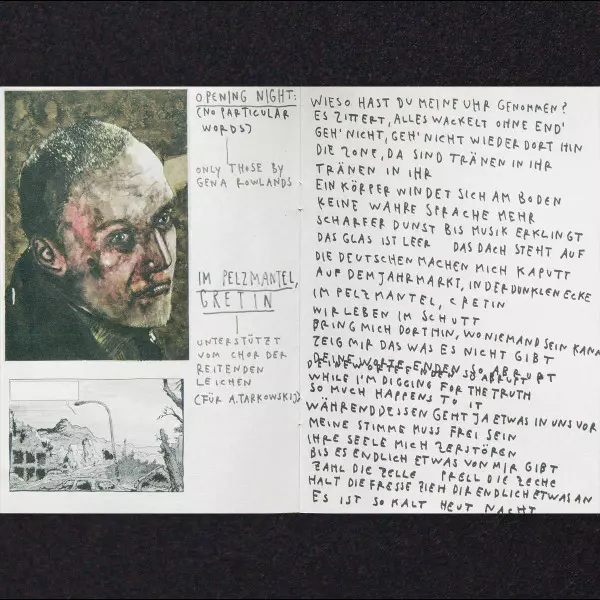 OPENING NIGHT:
(NO PARTICULAR
WORDS)
ONLY THOSE BY
GENA ROWLANDS
IM PELZMANTEL,
CRETIN
UNTERSTÜTZT
VOM CHOR DER
REITENDEN
LEICHEN
(FÜR A.TARKOWSKIJ)
WIESO HAST DU MEINE UHR GENOMMEN?
ES ZITTERT, ALLES WACKELT OHNE END'
GEH' NICHT, GEH' NICHT WIEDER DORT HIN
DIE ZONE, DA SIND TRÄNEN IN IHR
TRÄNEN IN IHR
EIN KÖRPER WINDET SICH AM BODEN
KEINE WAHRE SPRACHE MEHR
SCHARFER DUNST BIS MUSIK ERKLINGT
DAS GLAS IST LEER DAS DACH STEHT AUF
DIE DEUTSCHEN MACHEN MICH KAPUTT
AUF DEM JAHRMARKT, IN DER DUNKLEN ECKE
IM PELZMANTEL, CRETIN
WIR LEBEN IM SCHUTT
BRING MICH DORTHIN, WO NIEMAND SEIN KANN
ZEIG MIR DAS WAS ES NICHT GIBT
DEINE WORTE ENDEN SO ABRUPT
DEINE WORTE ENDEN SO ABRUPT
WHILE I'M DIGGING FOR THE TRUTH
SO MUCH HAPPENS TO IT
WÄHRENDDESSEN GEHT JA ETWAS IN UNS VOR
MEINE STIMME MUSS FREI SEIN
IHRE SEELE MICH ZERSTÖREN
BIS ES ENDLICH ETWAS VON MIR GIBT
ZAHL DIE ZELLE PRELL DIE ZECHE
HALT DIE FRESSE ZIEH DIR ENDLICH ETWAS AN
ES IST SO KALT HEUT NACHT